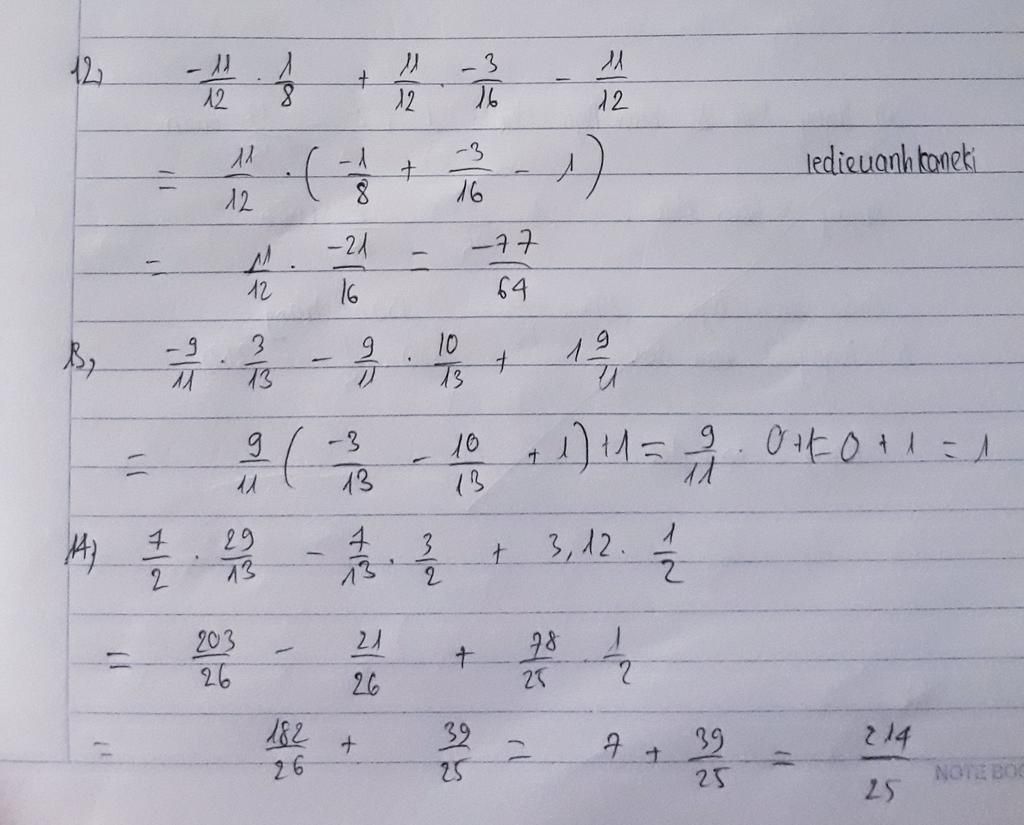 12, -11/12 . 1/8 + 11/12 . -3/16 - 11/12
= 11/12 . ( -1/8 + -3/16 - 1 )
ledieuanhkaneki
= 11/12 . -21/16 = -77/64
13, -9/11 . 3/13 - 9/11 . 10/13 + 1 9/11
= 9/11 ( -3/13 - 10/13 + 1 ) + 1 = 9/11 . 0 + 1 = 0 + 1 = 1
14, 7/2 . 29/13 - 7/13 . 3/2 + 3,12 . 1/2
= 203/26 - 21/26 + 78/25 . 1/2
= 182/26 + 39/25 = 7 + 39/25 = 214/25
NOTE BOO